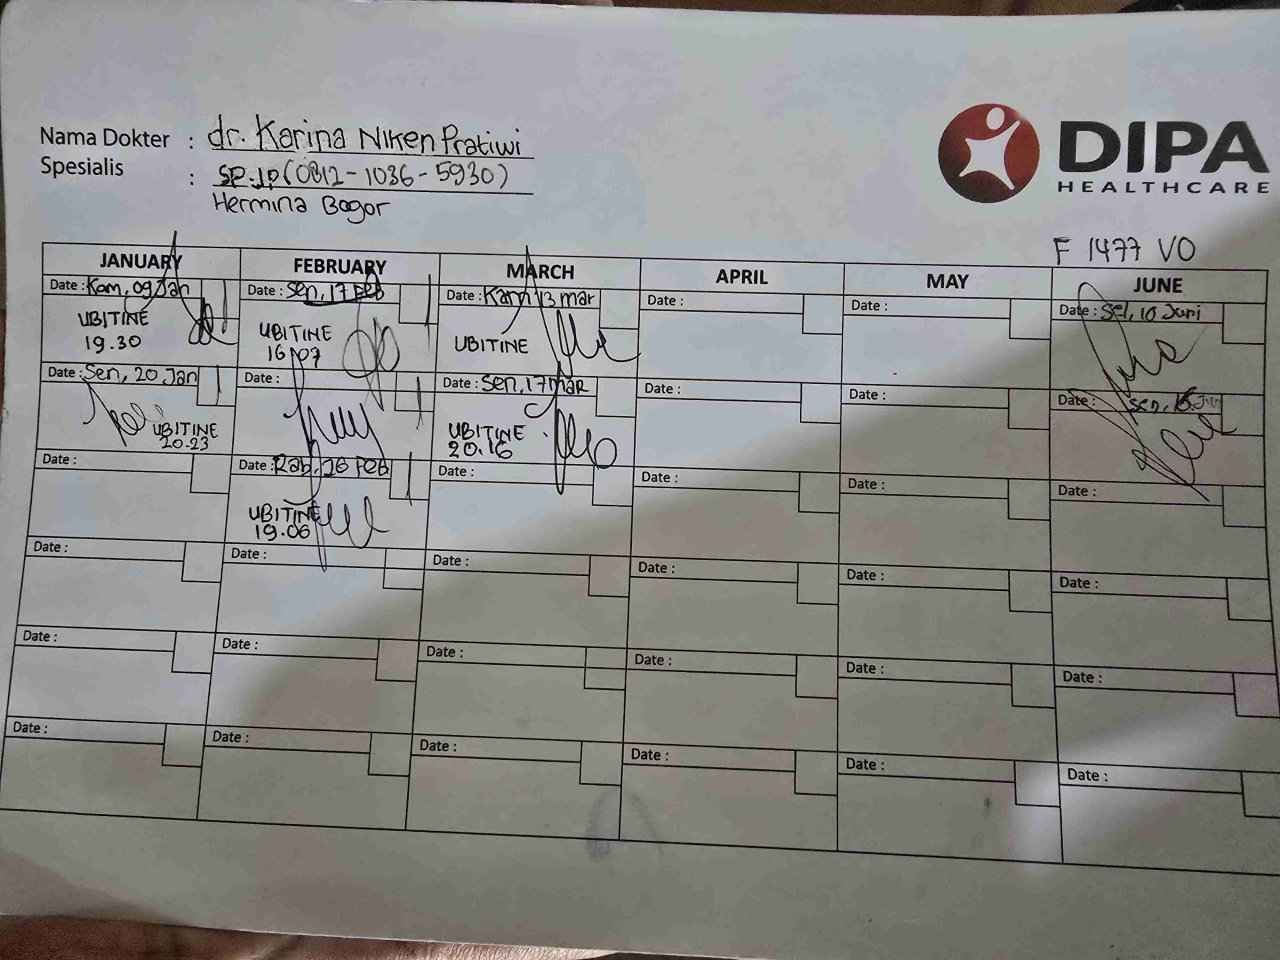 Nama Dokter : dr. Karina Niken Pratiwi
Spesialis : SP.JP (0812-1036-5930)
Hermina Bogor
DIPA
HEALTHCARE
F 1477 VO
JANUARY FEBRUARY MARCH APRIL MAY JUNE
Date : Kam, 09 Jan Date : Sen, 17 Feb Date : Kam 13 mar Date : Date : Date : Sel, 10 Juni
UBITINE UBITINE UBITINE
19.30 16.07
Date : Sen, 20 Jan Date : Date : Sen, 17 mar Date : Date : Date : Sen, Jun
UBITINE UBITINE
20.23 20.16
Date : Date : Rab, 26 Feb Date : Date : Date : Date :
UBITINE
19.06
Date : Date : Date : Date : Date : Date :
Date : Date : Date : Date : Date : Date :
Date : Date : Date : Date : Date : Date :